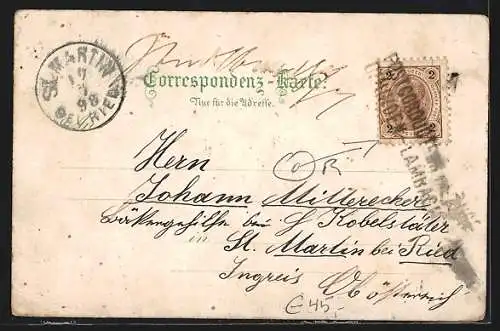 ST. MARTIN
17
98
BEI RIED
Correspondenz-Karte.
Nur für die Adresse.
2 2
Herrn
Johann Mitterecker
Bäckergehilfe bei H Kobelstäter
in St. Martin bei Ried
Ingreis Ob österreich
€ 45.-